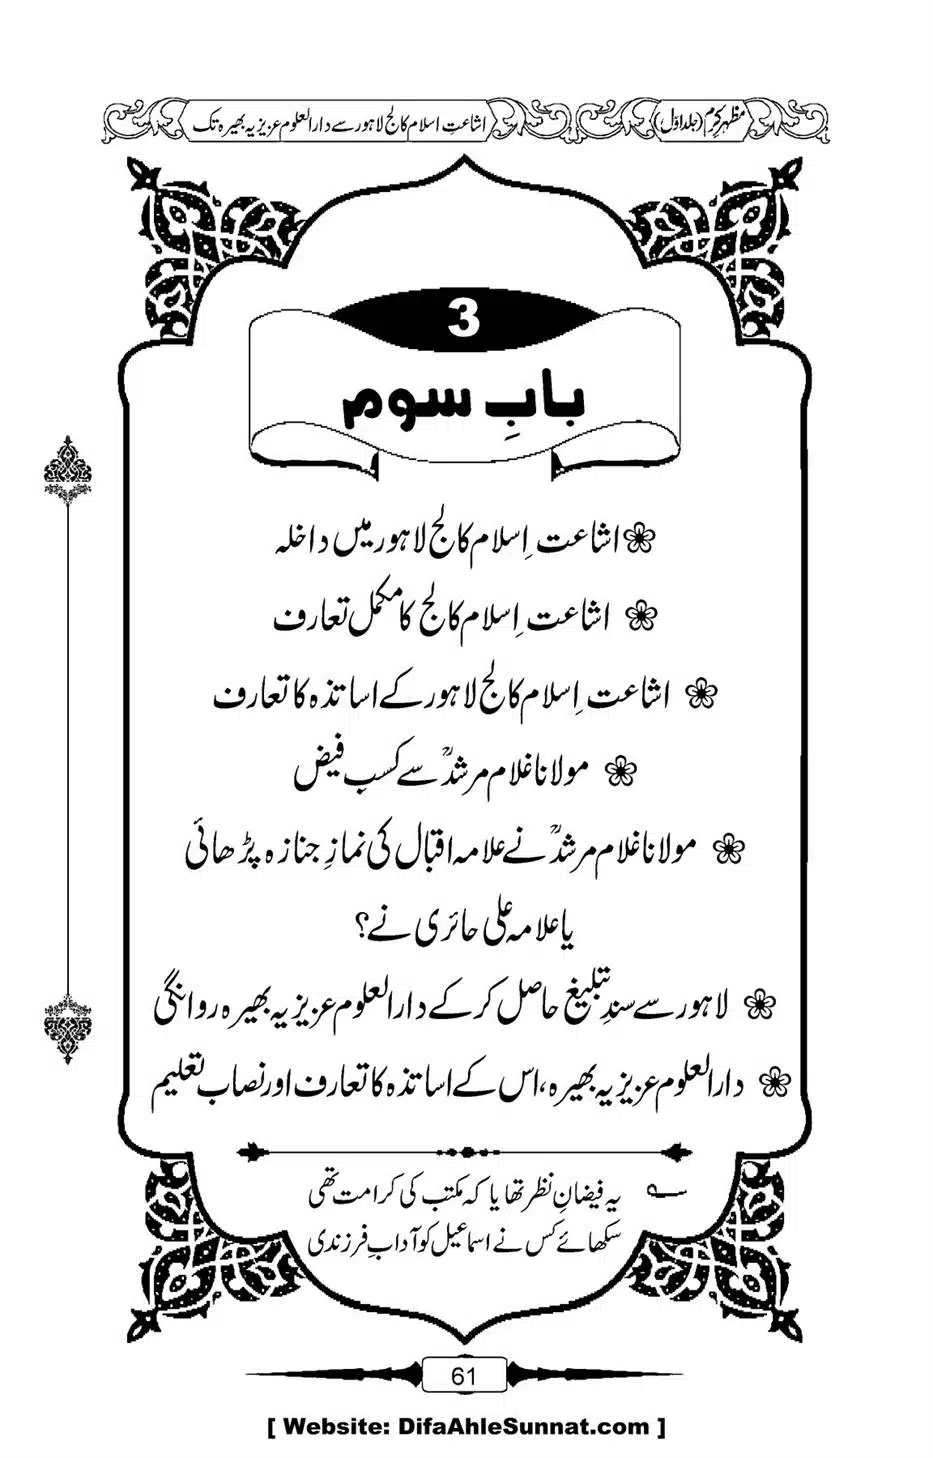 مظہرِ کرم (جلد اوّل)
اشاعتِ اسلام کالج لاہور سے دارالعلوم عزیزیہ بھیرہ تک
3
بابِ سوم
اشاعتِ اسلام کالج لاہور میں داخلہ
اشاعتِ اسلام کالج کا مکمل تعارف
اشاعتِ اسلام کالج لاہور کے اساتذہ کا تعارف
مولانا غلام مرشدؒ سے کسب فیض
مولانا غلام مرشدؒ نے علامہ اقبال کی نمازِ جنازہ پڑھائی
یا علامہ علی حائری نے؟
لاہور سے سندِ تبلیغ حاصل کر کے دارالعلوم عزیزیہ بھیرہ روانگی
دارالعلوم عزیزیہ بھیرہ، اس کے اساتذہ کا تعارف اور نصاب تعلیم
یہ فیضانِ نظر تھا یا کہ مکتب کی کرامت تھی
سکھائے کس نے اسماعیل کو آدابِ فرزندی
61
[ Website: DifaAhleSunnat.com ]